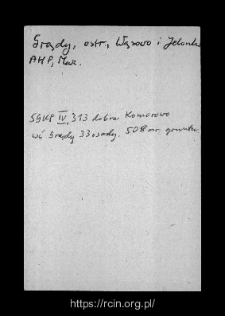 Grądy, ostr., Wąsewo i Jelonki
AHP, Maz.
SGKP IV, 313 dobra Komorowo
wś Grądy 33 osady, 508 mr. gruntu.
https://rcin.org.pl/